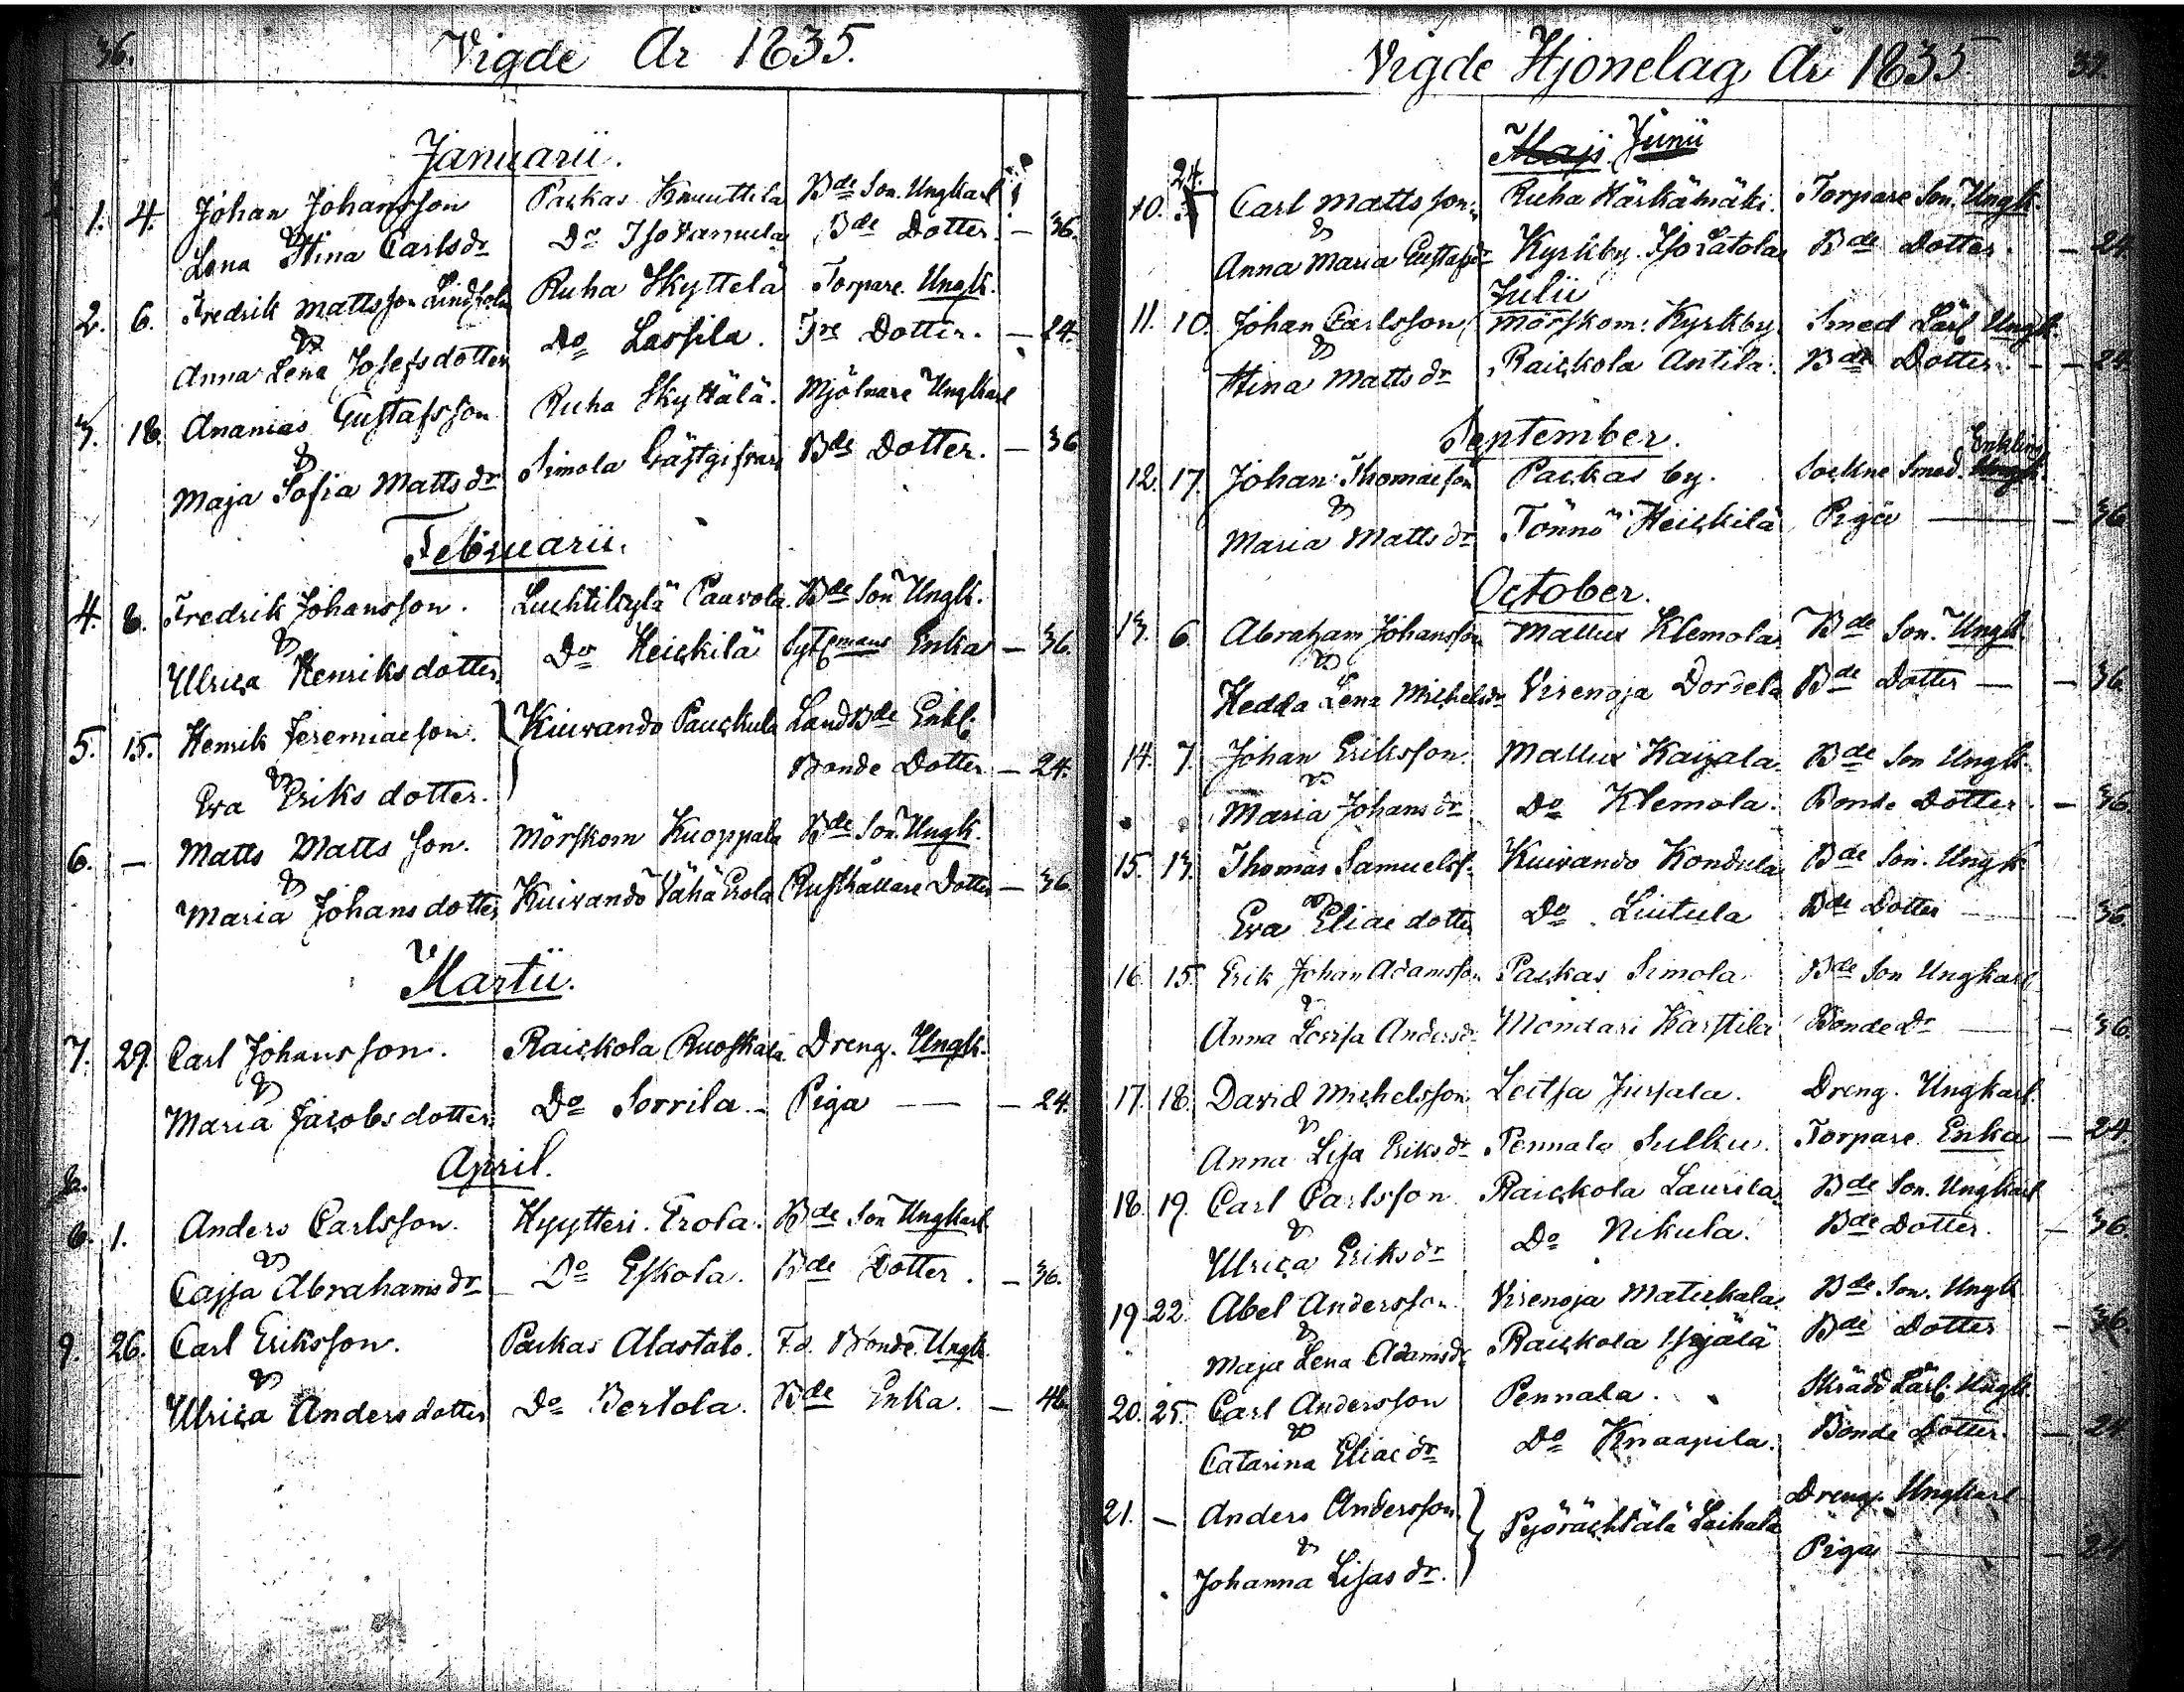 36.
Vigde År 1835.
Januarii.
1. 4. Johan Johansson Packas Knuuttila Bde Son. Ungkarl
& Lena Stina Carlsdr Do Isotamula Bde Dotter. — 36.
2. 6. Fredrik Mattsson Lindholm Ruha Skyttelä Torpare. Ungk.
& Anna Lena Josefsdotter Do Lassila. Tre Dotter. — 24.
3. 18. Ananias Gustafsson Ruha Skyttälä. Mjölnare Ungkarl
& Maja Sofia Mattsdr Simola Gästgifvari Bde Dotter. — 36
Februarii.
4. 8. Fredrik Johansson. Luchtikylä Paavola. Bde Son Ungk.
& Ulrica Henriksdotter Do Heickilä Sytmans Enka — 36.
5. 15. Henrik Jeremiaeson. } Kuivando Pauckula LandBde Enkl.
& Eva Eriks dotter. Bonde Dotter — 24.
6. — Matts Matts son. Mörskom Kuoppala Bde Son. Ungk.
& Maria Johans dotter Kuivando Vähä Erola Rusthållare Dotter — 36.
Martii.
7. 29. Carl Johansson. Raickola Ruoskala Dreng. Ungk.
& Maria Jacobs dotter. Do Sorrila. Piga — — 24.
April.
8.
8. 1. Anders Carlsson. Kyytteri. Erola. Bde Son Ungkarl
& Cajsa Abrahamsdr Do Eskola. Bde Dotter. — 36.
9. 26. Carl Eriksson. Packas Alastalo. F.d. Bonde. Ungk.
& Ulrica Anders dotter Do Bertola. Bde Enka. — 48.
Vigde Hjonelag År 1835. 37.
Maji Junii
10. 24. Carl Matts son. Ruha Härkämäki. Torpare Son. Ungk.
& Anna Maria Gustafsdr Kyrkby. Iso Latola Bde Dotter. — 24.
Julii
11. 10. Johan Carlsson, Mörskom: Kyrkby Smed Lärl. Ungk.
& Stina Mattsdr Raickola Antila. Bde Dotter. — 24.
September.
12. 17. Johan Thomaeson Packas by. Sockne Smed. Ungk. Enkling
& Maria Mattsdr Tönnö Heickilä Piga — 36.
October.
13. 6. Abraham Johansson Mallux Klemola Bde Son. Ungk.
& Hedda Lena Michelsdr Virenoja Dordela Bde Dotter — — 36.
14. 7. Johan Eriksson. Mallux Kaijala. Bde Son Ungk.
& Maria Johansdr Do Klemola. Bonde Dotter. — 36.
15. 13. Thomas Samuelss. Kuivando Kondula Bde Son. Ungk.
& Eva Eliae dotter Do Liutula Bde Dotter — 36.
16. 15. Erik Johan Adamsson Packas Simola. Bde Son Ungkarl
& Anna Lovisa Andersdr Mondari Karstila Bonde Dr — 36.
17. 18. David Michelsson Leitsa Jussala. Dreng. Ungkarl.
& Anna Lisa Eriksdr Pennala Sulku. Torpare Enka — 24
18. 19. Carl Carlsson Raickola Laurila Bde Son. Ungkarl
& Ulrica Eriksdr Do Nikula. Bde Dotter. — 36.
19. 22. Abel Andersson Virenoja Matickala. Bde Son. Ungk
& Maja Lena Adamsdr Raickola Ypjälä Bde Dotter — 36.
20. 25. Carl Andersson Pennala. Skrädd. Lärl. Ungk.
& Catarina Eliaedr Do Knaapila. Bonde Dotter. — 24
21. — Anders Andersson } Pyörächtälä Laihala Dreng. Ungkarl
& Johanna Lisasdr. Piga — 24